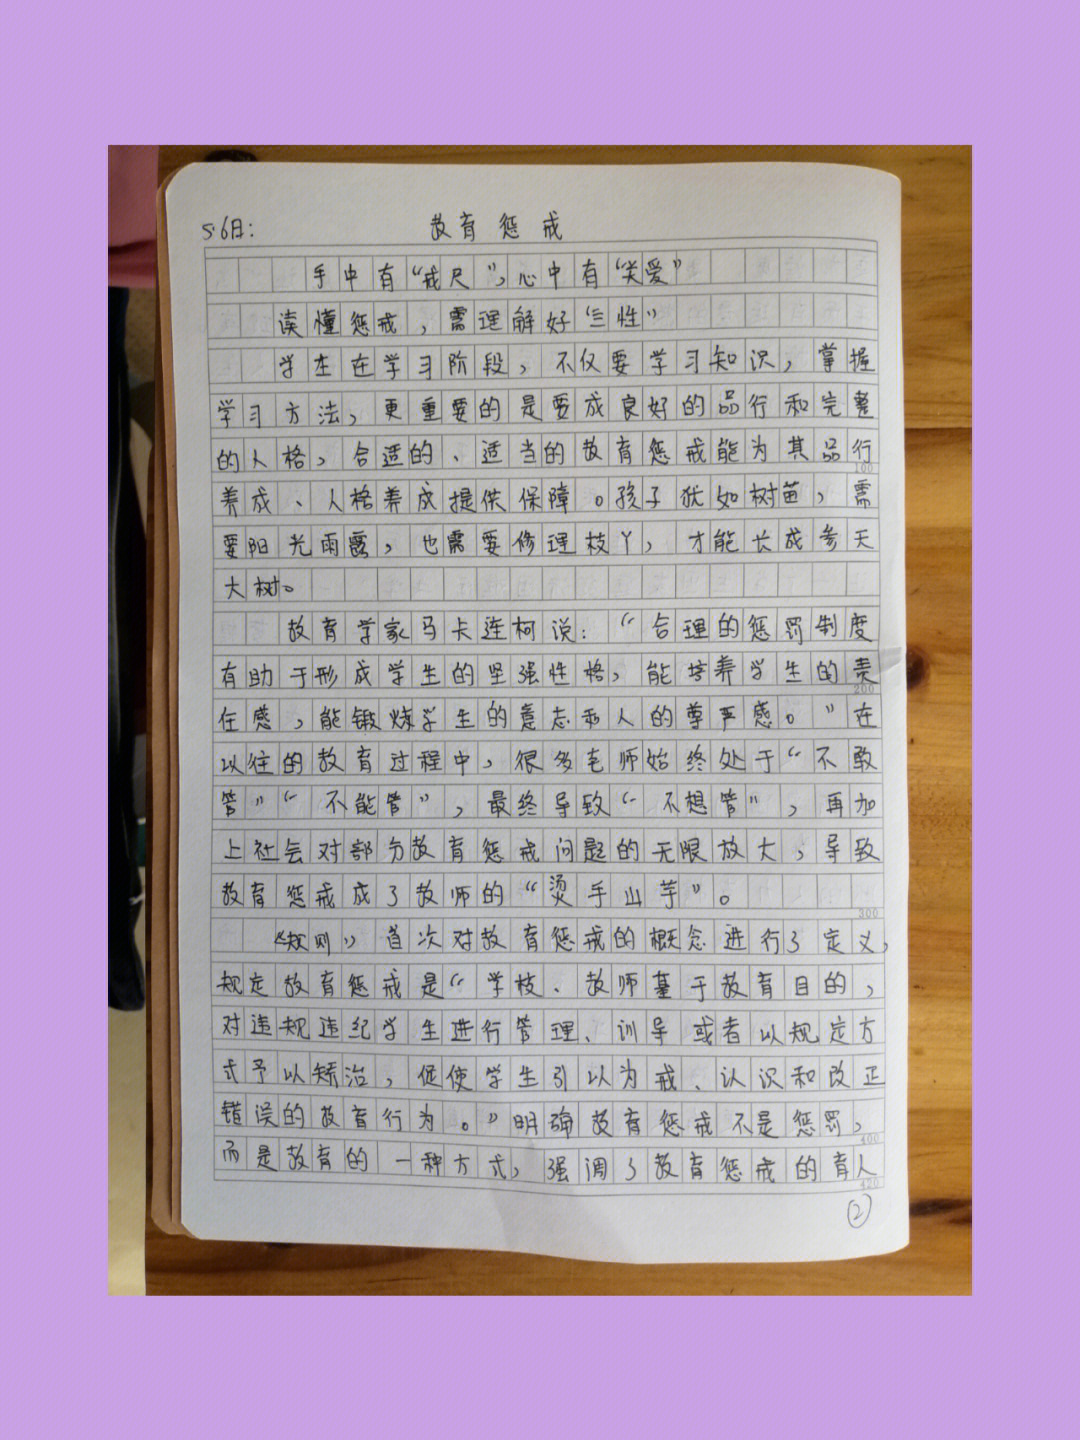 5.6日: 教育惩戒
手中有“戒尺”,心中有“关爱”
读懂惩戒,需理解好“三性”
学生在学习阶段,不仅要学习知识,掌握
学习方法,更重要的是要成良好的品行和完整
的人格,合适的、适当的教育惩戒能为其品行
养成、人格养成提供保障。孩子犹如树苗,需
要阳光雨露,也需要修理枝丫,才能长成参天
大树。
教育学家马卡连柯说:“合理的惩罚制度
有助于形成学生的坚强性格,能培养学生的责
任感,能锻炼学生的意志和人的尊严感。”在
以往的教育过程中,很多老师始终处于“不敢
管”“不能管”,最终导致“不想管”,再加
上社会对部分教育惩戒问题的无限放大,导致
教育惩戒成了教师的“烫手山芋”。
《规则》首次对教育惩戒的概念进行了定义,
规定教育惩戒是“学校、教师基于教育目的,
对违规违纪学生进行管理、训导或者以规定方
式予以矫治,促使学生引以为戒、认识和改正
错误的教育行为。”明确教育惩戒不是惩罚,
而是教育的一种方式,强调了教育惩戒的育人
100
200
300
400
420
②